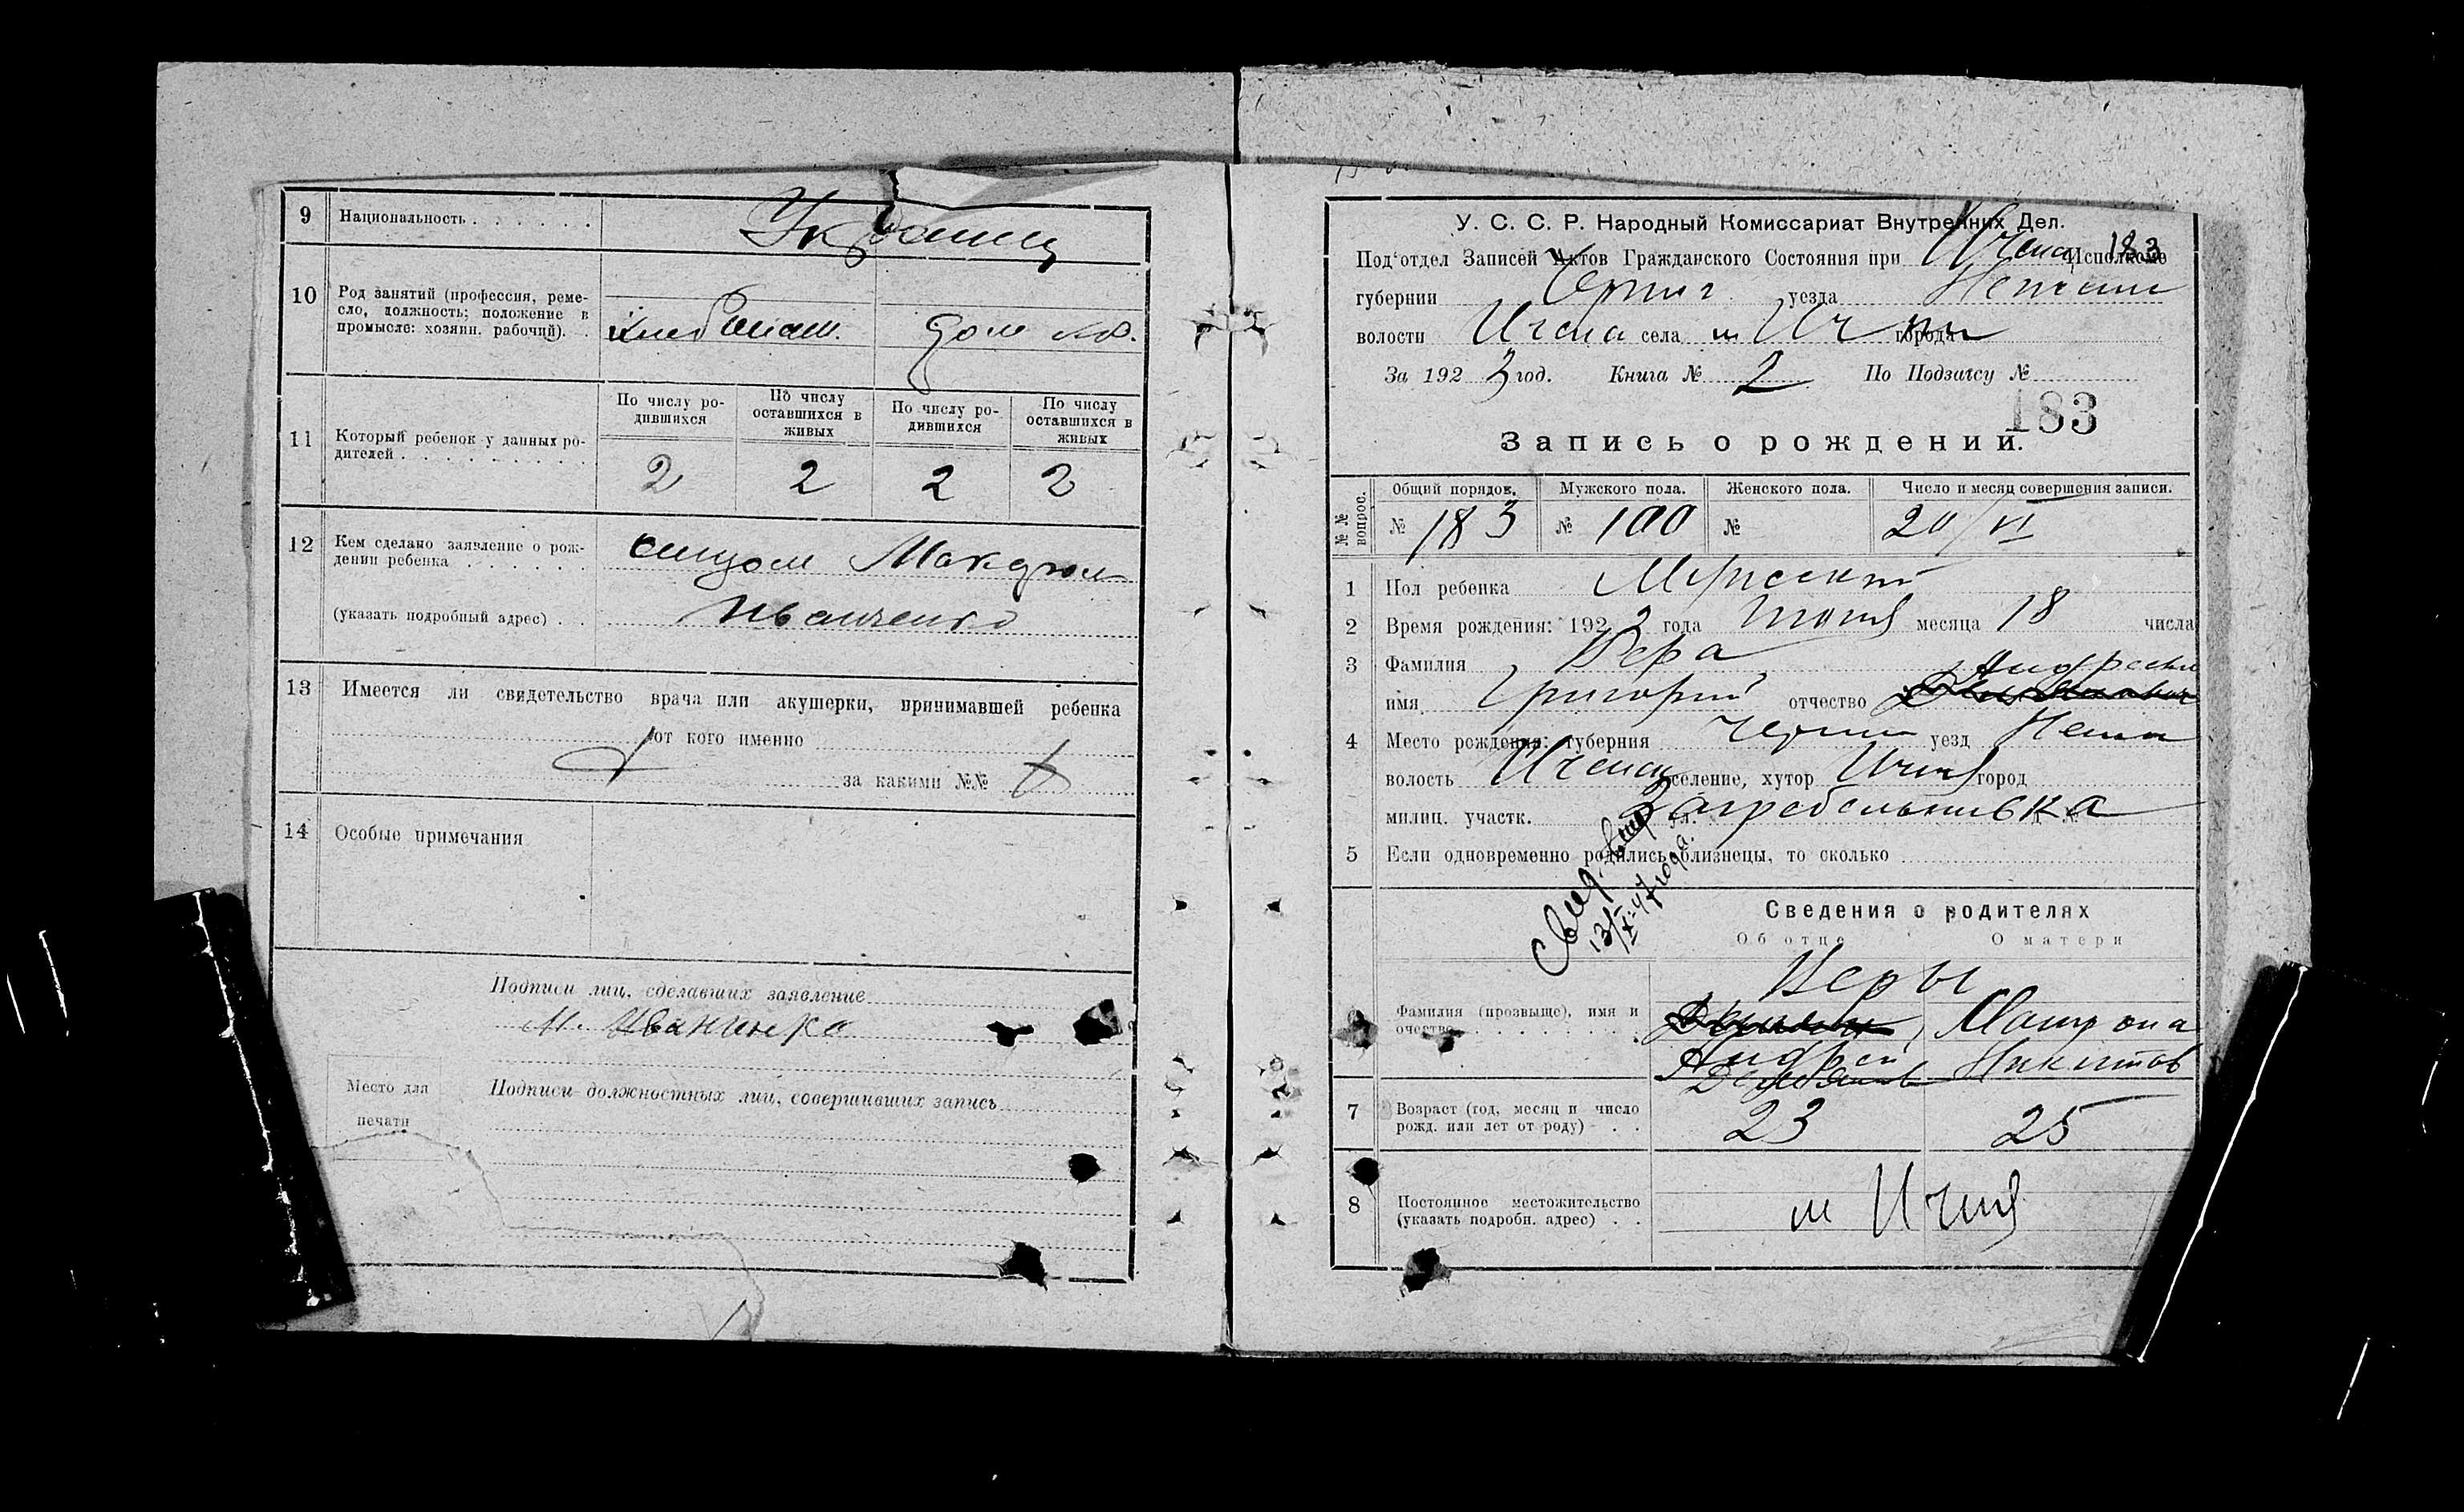 9 Национальность . . . . . . Украинц
10 Род занятий (профессия, реме-
сло, должность; положение в
промысле: хозяин, рабочий). . Хлебопаш. дом хоз.
11 Который ребенок у данных ро-
дителей . . . . . . . . .
По числу ро-
дившихся
По числу
оставшихся в
живых
По числу ро-
дившихся
По числу
оставшихся в
живых
2 2 2 2
12 Кем сделано заявление о рож-
дении ребенка . . . . . .
(указать подробный адрес) . .
Иванченко
13 Имеется ли свидетельство врача или акушерки, принимавшей ребенка
от кого именно
за какими №№
14 Особые примечания
Подписи лиц, сделавших заявление
М. Иваненко
Место для
печати
Подписи должностных лиц, совершивших запись
У. С. С. Р. Народный Комиссариат Внутренних Дел.
Под'отдел Записей Актов Гражданского Состояния при Ичен Исполкоме 183
губернии Черниг уезда Нежин
волости Ичена села м Ичня города
За 1923 год. Книга № 2 По Подзаису №
183
Запись о рождении.
№№ вопрос.
Общий порядов. Мужского пола. Женского пола. Число и месяц совершения записи.
№ 183 № 100 № 20/VI
1 Пол ребенка Мужской
2 Время рождения: 1923 года Июня месяца 18 числа
3 Фамилия Вера
имя Григорий отчество Андреев
4 Место рождения: губерния Черниг уезд Нежин
волость Иченск селение, хутор Ичня город
милиц. участк. ул. Загребельнивка д. №
5 Если одновременно родились близнецы, то сколько
Свид. выд
13/IX-47 года.
Сведения о родителях
Об отце О матери
Веры
Фамилия (прозвище), имя и
очество . . . . . . . . .
Андрей
Демьянов
Матрона
Никитов
7 Возраст (год, месяц и число
рожд. или лет от роду) . . 23 25
8 Постоянное местожительство
(указать подробн. адрес) . . м Ичня